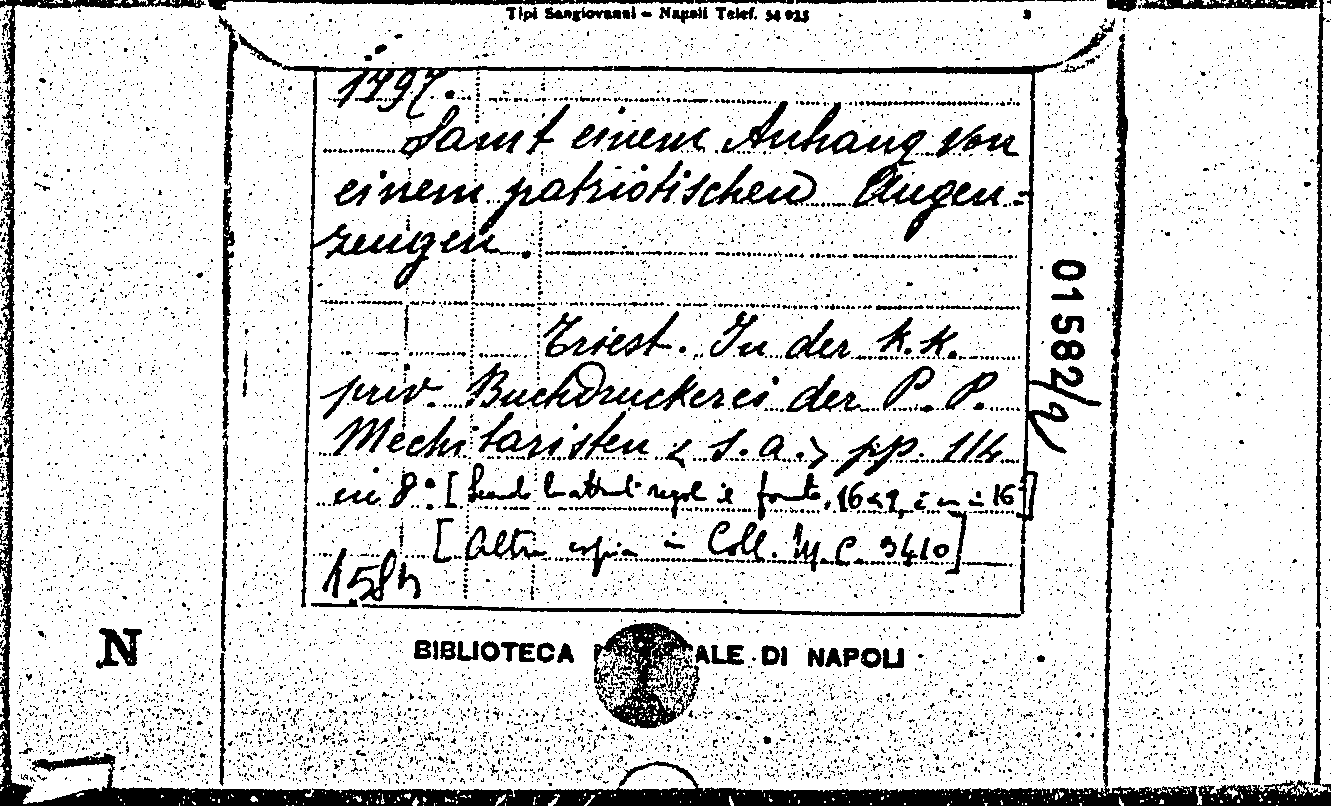 Tipi Sangiovanni - Napoli Telef. 54 025
1797.
Samt einem Anhang von
einem patriotischen Augen=
zeugen.
Triest. In der K.K.
priv. Buchdruckerei der P. P.
Mechitaristen < s.a. > pp. 114
in 8°. [
[Altra copia in Coll. M. C. 3410]
158
01582/
N
BIBLIOTECA ALE DI NAPOLI